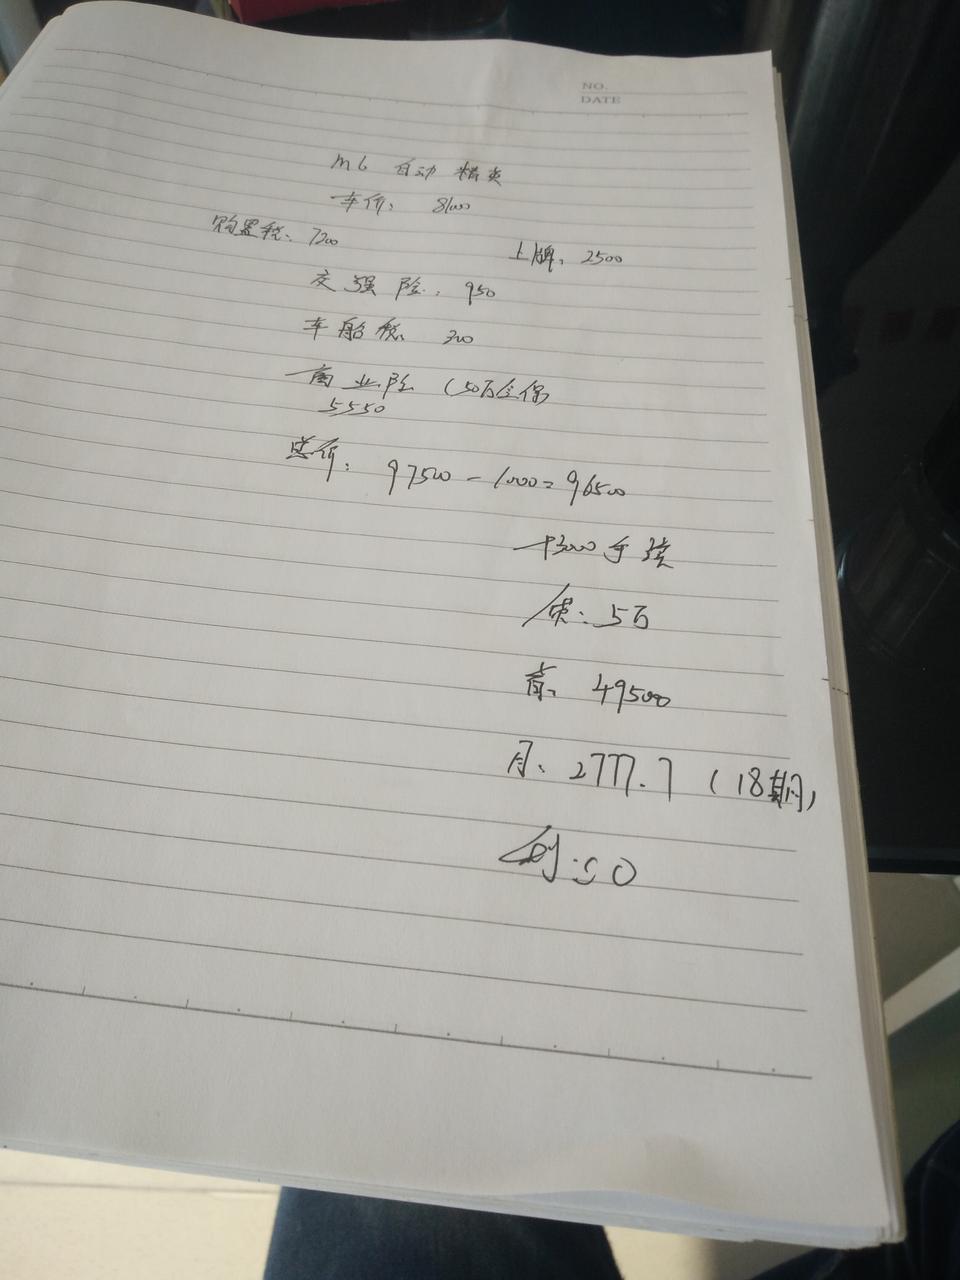 NO.
DATE
M6 自动 精英
车价: 81000
购置税: 7200
上牌: 2500
交强险: 950
车船税 300
商业险 (50万全保
5550
总价: 97500-1000=96500
+3000手续
贷: 5万
首: 49500
月: 2777.7 (18期)
利: 0